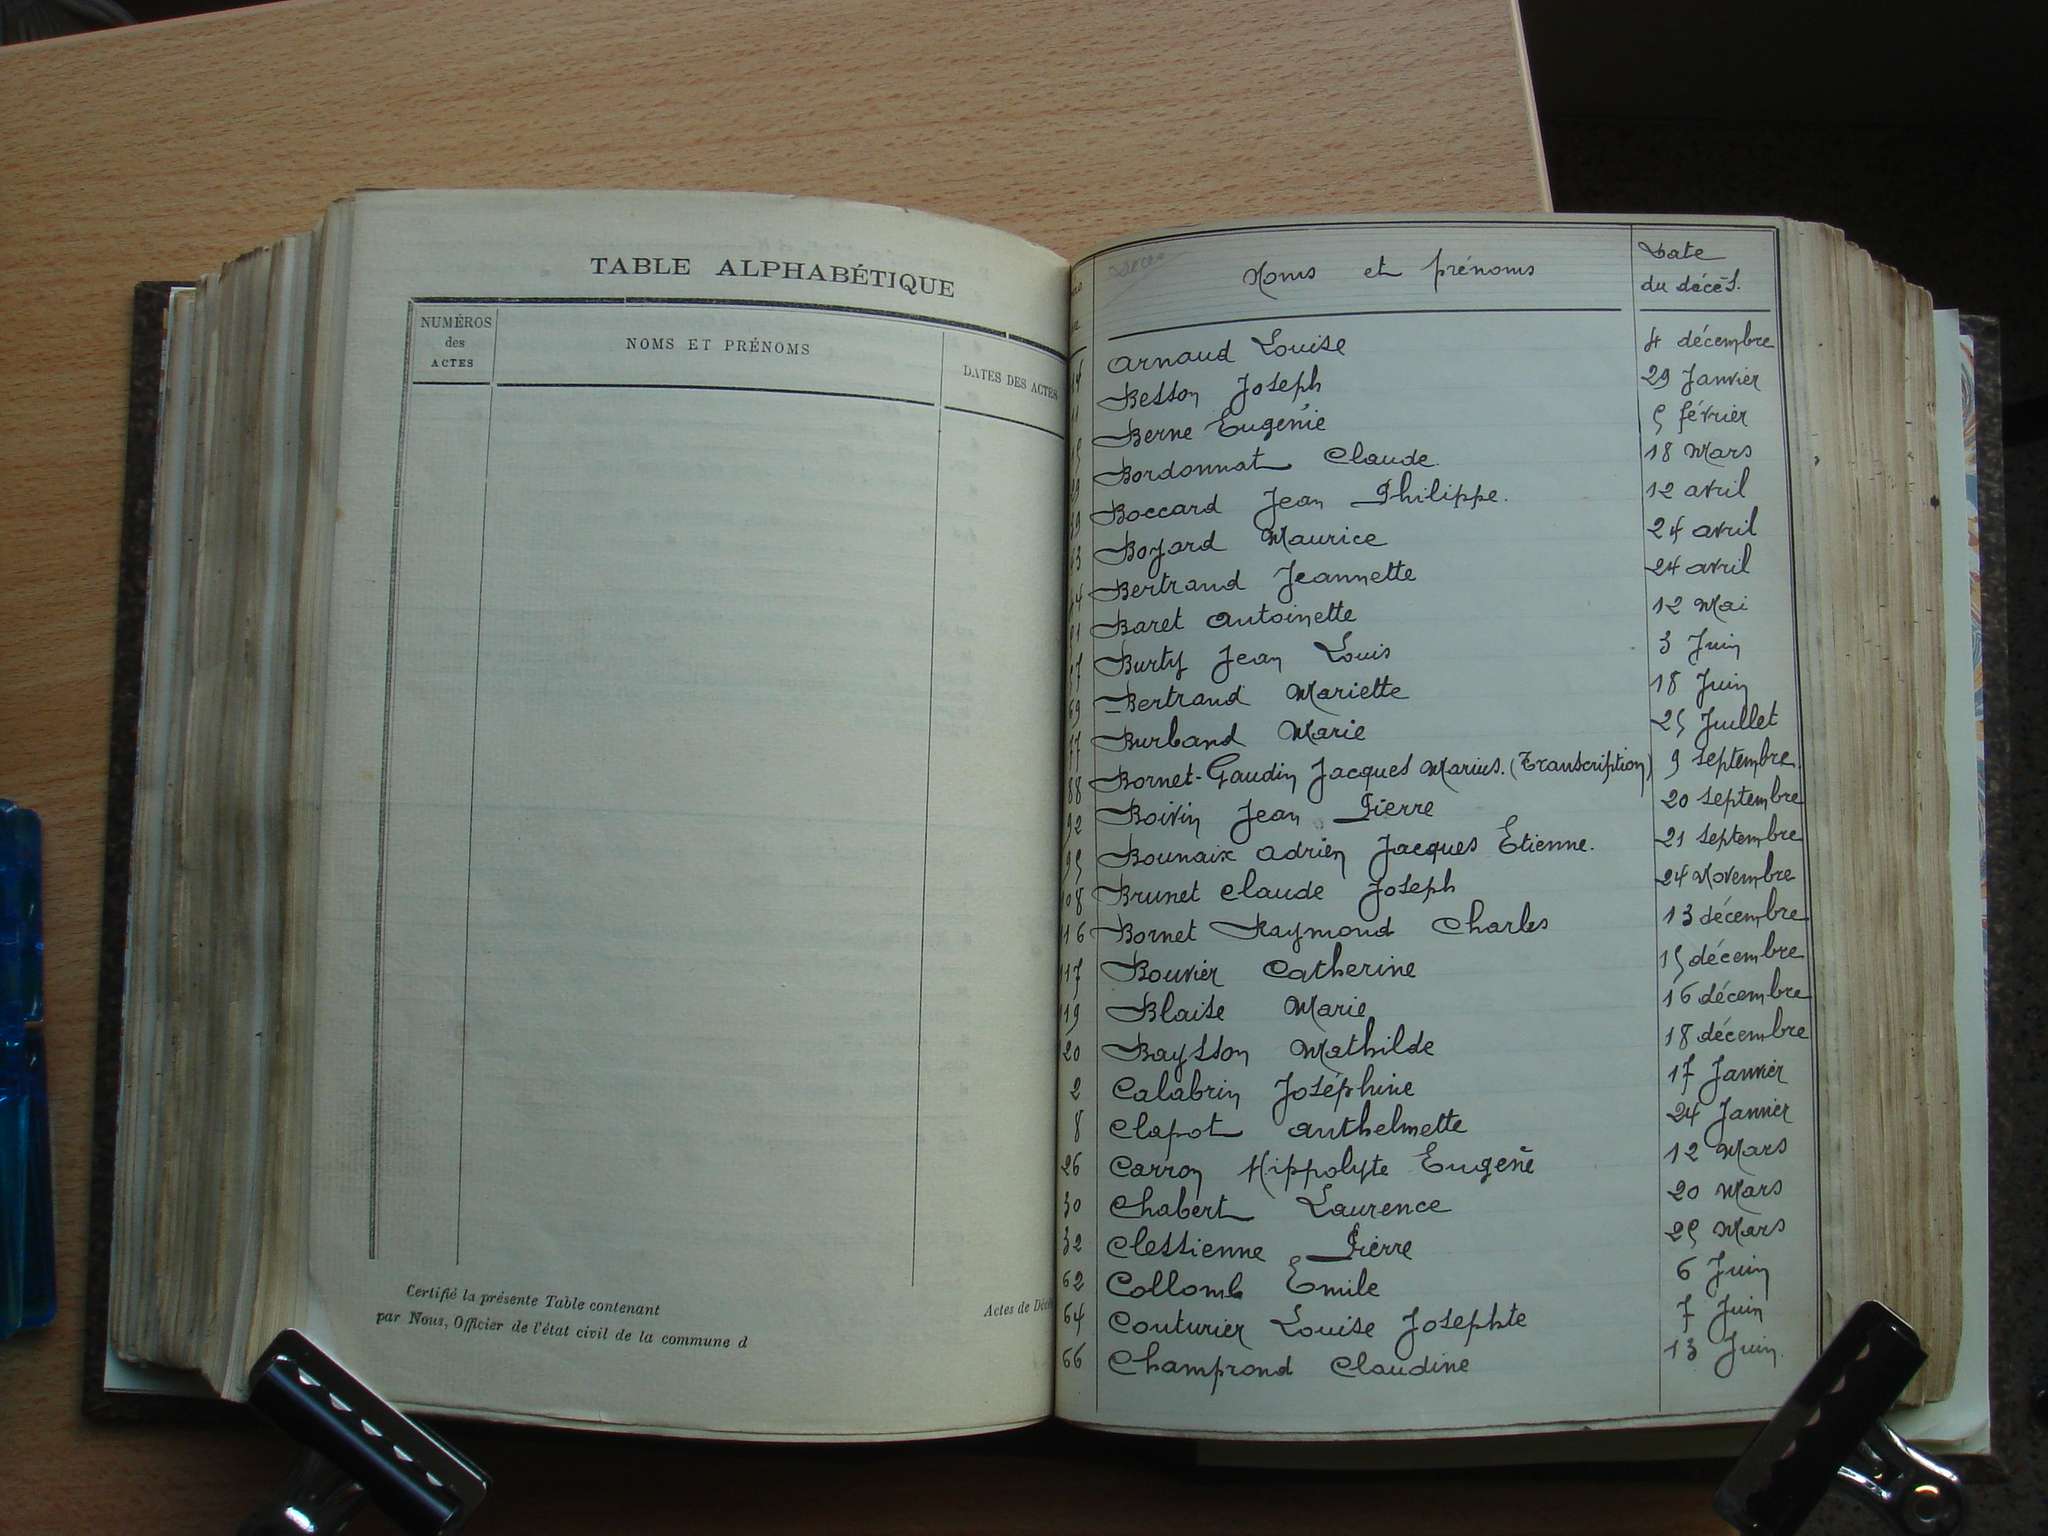 TABLE ALPHABÉTIQUE
NUMÉROS
des
ACTES
NOMS ET PRÉNOMS
DATES DES ACTES
Certifié la présente Table contenant
Actes de Décè
par Nous, Officier de l'état civil de la commune d
Noms et prénoms
Date
du décès.
Arnaud Louise 4 décembre
Besson Joseph 29 Janvier
Berne Eugénie 5 février
Bordonnat Claude. 18 Mars
Boccard Jean Philippe. 12 avril
Boyard Maurice 24 avril
Bertrand Jeannette 24 avril
Baret Antoinette 12 Mai
Burty Jean Louis 3 Juin
Bertrand Mariette 18 Juin
Burband Marie 25 Juillet
88 Bornet-Gaudin Jacques Marius. (Transcription) 9 septembre
92 Boivin Jean Pierre 20 septembre
95 Bounaix Adrien Jacques Etienne. 21 septembre
108 Brunet Claude Joseph 24 Novembre
116 Bornet Raymond Charles 13 décembre
117 Bouvier Catherine 15 décembre
119 Blaise Marie 16 décembre
20 Baysson Mathilde 18 décembre
2 Calabrin Joséphine 17 Janvier
8 Clapot Anthelmette 24 Janvier
26 Carron Hippolyte Eugene 12 Mars
30 Chabert Laurence 20 Mars
32 Clessienne Pierre 25 Mars
62 Collomb Emile 6 Juin
64 Couturier Louise Josephte 7 Juin
66 Champrond Claudine 13 Juin.